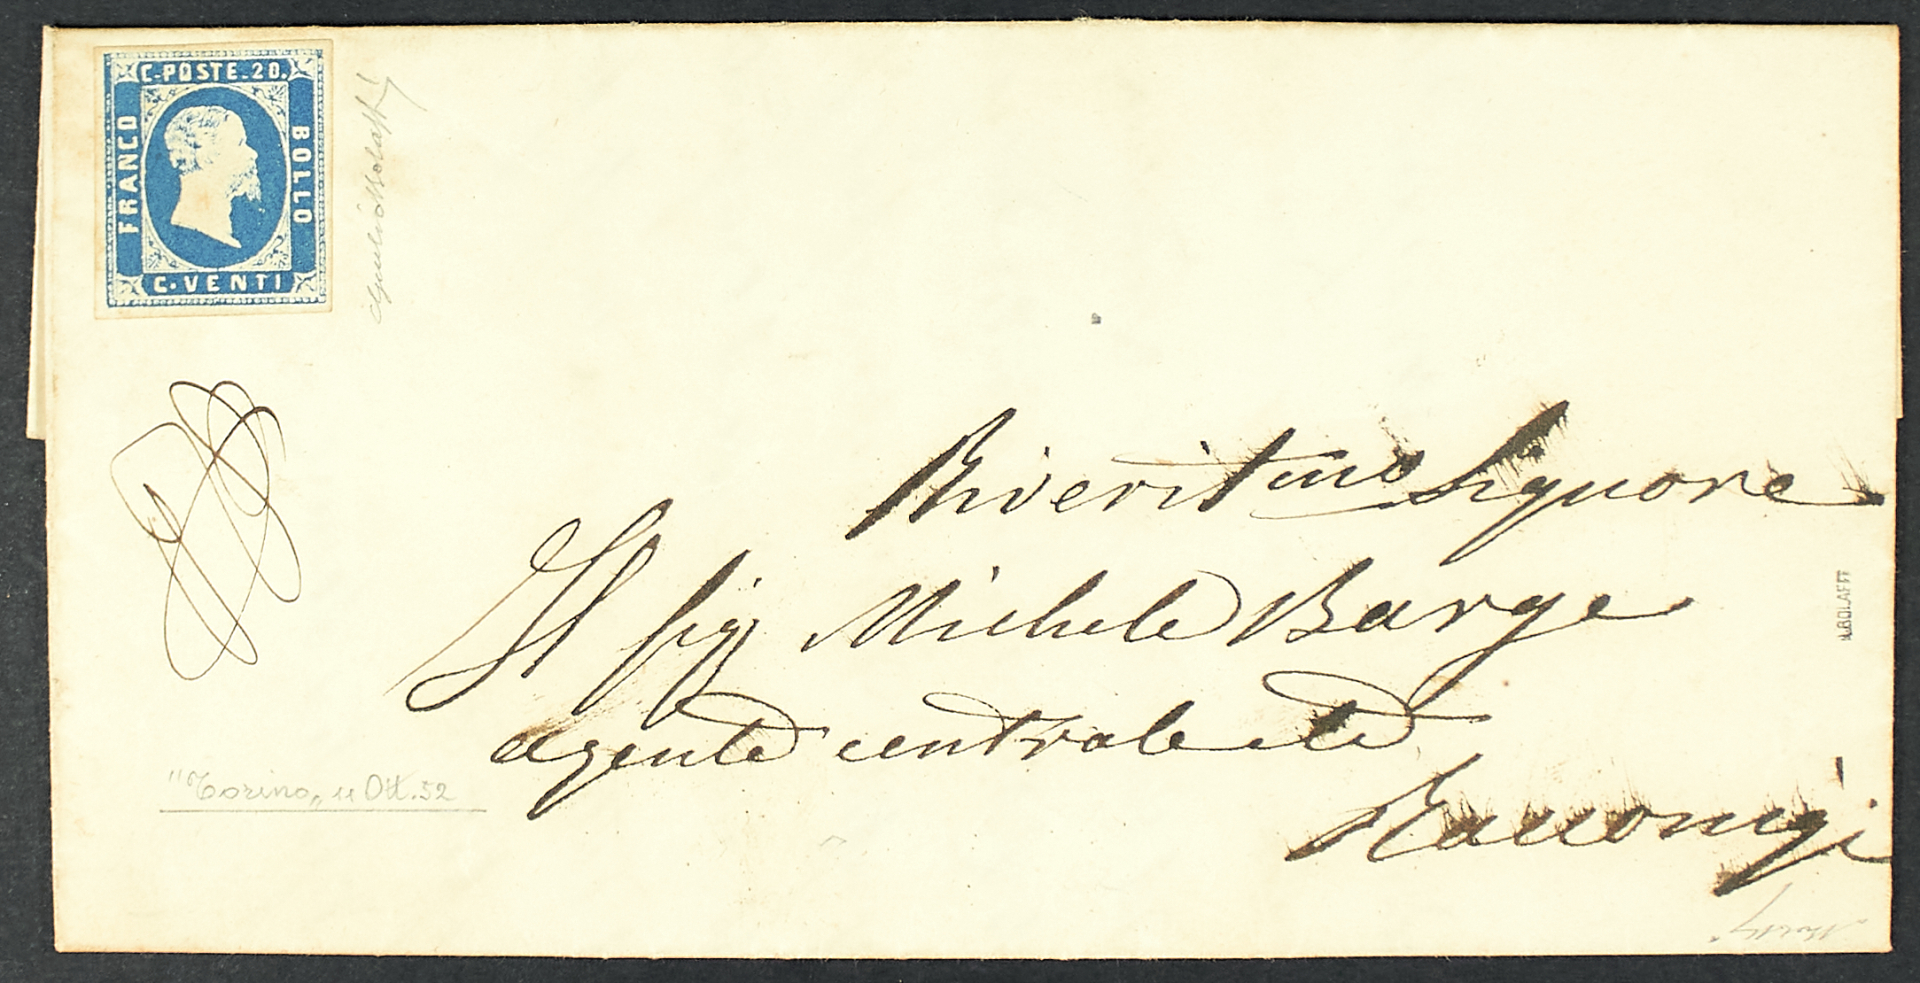 C-POSTE.20.
FRANCO
BOLLO
C.VENTI
Riveritmo Signore
Il Sigr Michele Barge
Agente centrale ete
Racconigi
"Torino„ 11 Ott. 52
A.BOLAFFI